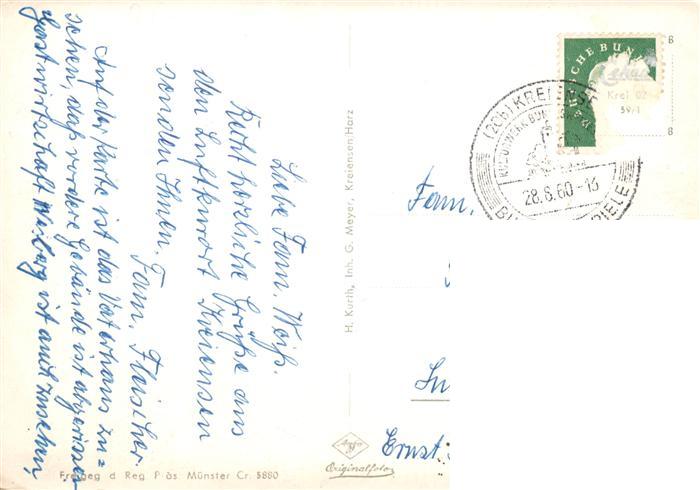 Liebe Fam. Weiß.
Recht herzliche Grüße aus
dem Luftkurort Kreiensen
senden Ihnen.
Fam. Fleischer.
Auf der Karte ist das Vaterhaus zu=
sehen, das vordere Gebäude ist abgerissen
Gastwirtschaft ist auch zusehen,
H. Kurth, Inh. G. Meyer, Kreiensen/Harz
Agfa
Originalfoto
Freigeg d Reg P äs Münster Cr. 5880
SCHE BUN
Krei. 02
59/1
B
B
(20b) KREIENS
28.6.60-13
Fam.
In
Ernst